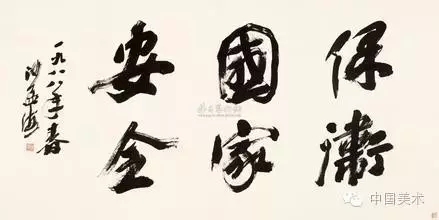 保衛
國家
安全
一九八八年春
沙孟海
中国美术